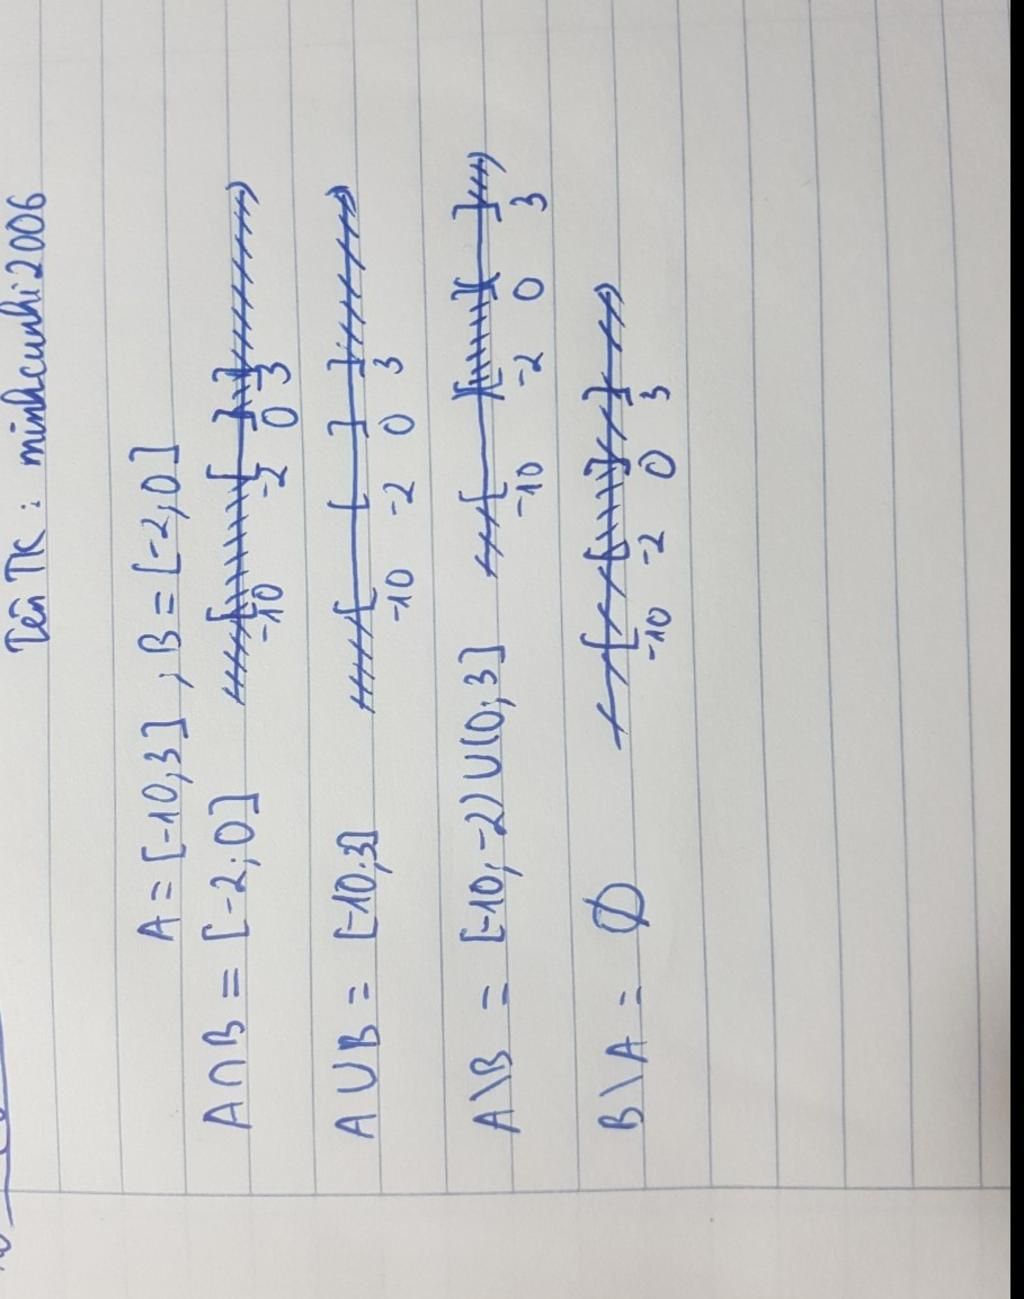 Tên TK : minhcunhi2006
A = [-10,3] , B = [-2,0]
A∩B = [-2;0]
-10 -2 0 3
A∪B = [-10;3]
-10 -2 0 3
A\B = [-10;-2)∪(0;3]
-10 -2 0 3
B\A = Ø
-10 -2 0 3